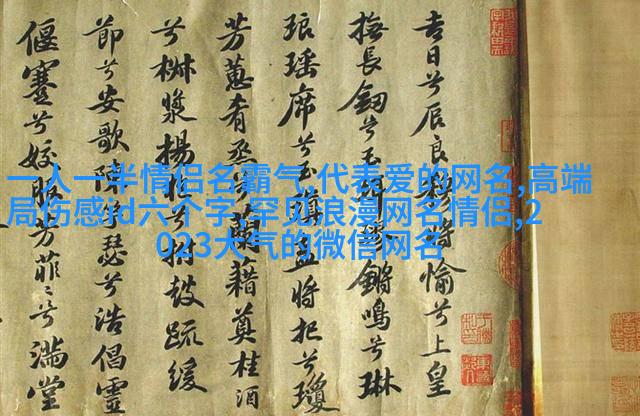 一人一半情侣名霸气,代表爱的网名,高端
局伤感id六个字,罕见浪漫网名情侣,2
023大气的微信网名
吉日兮辰良穆將愉兮上皇
撫長劒兮玉珥璆鏘鳴兮琳
琅瑤席兮玉瑱盍將把兮瓊
芳蕙肴烝兮蘭藉奠桂酒
兮椒漿揚枹兮拊鼓疏緩
節兮安歌陳竽瑟兮浩倡靈
偃蹇兮姣服芳菲菲兮滿堂